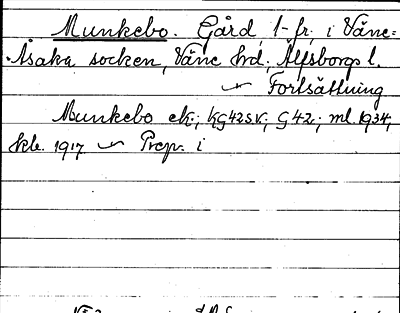 Munkebo. Gård 1-fr. i Väne-
Åsaka socken, Väne hd, Älfsborgs l.
Fortsättning
Munkebo ek; kG42SV; G42; ml. 1934,
skb. 1917 Prep. i